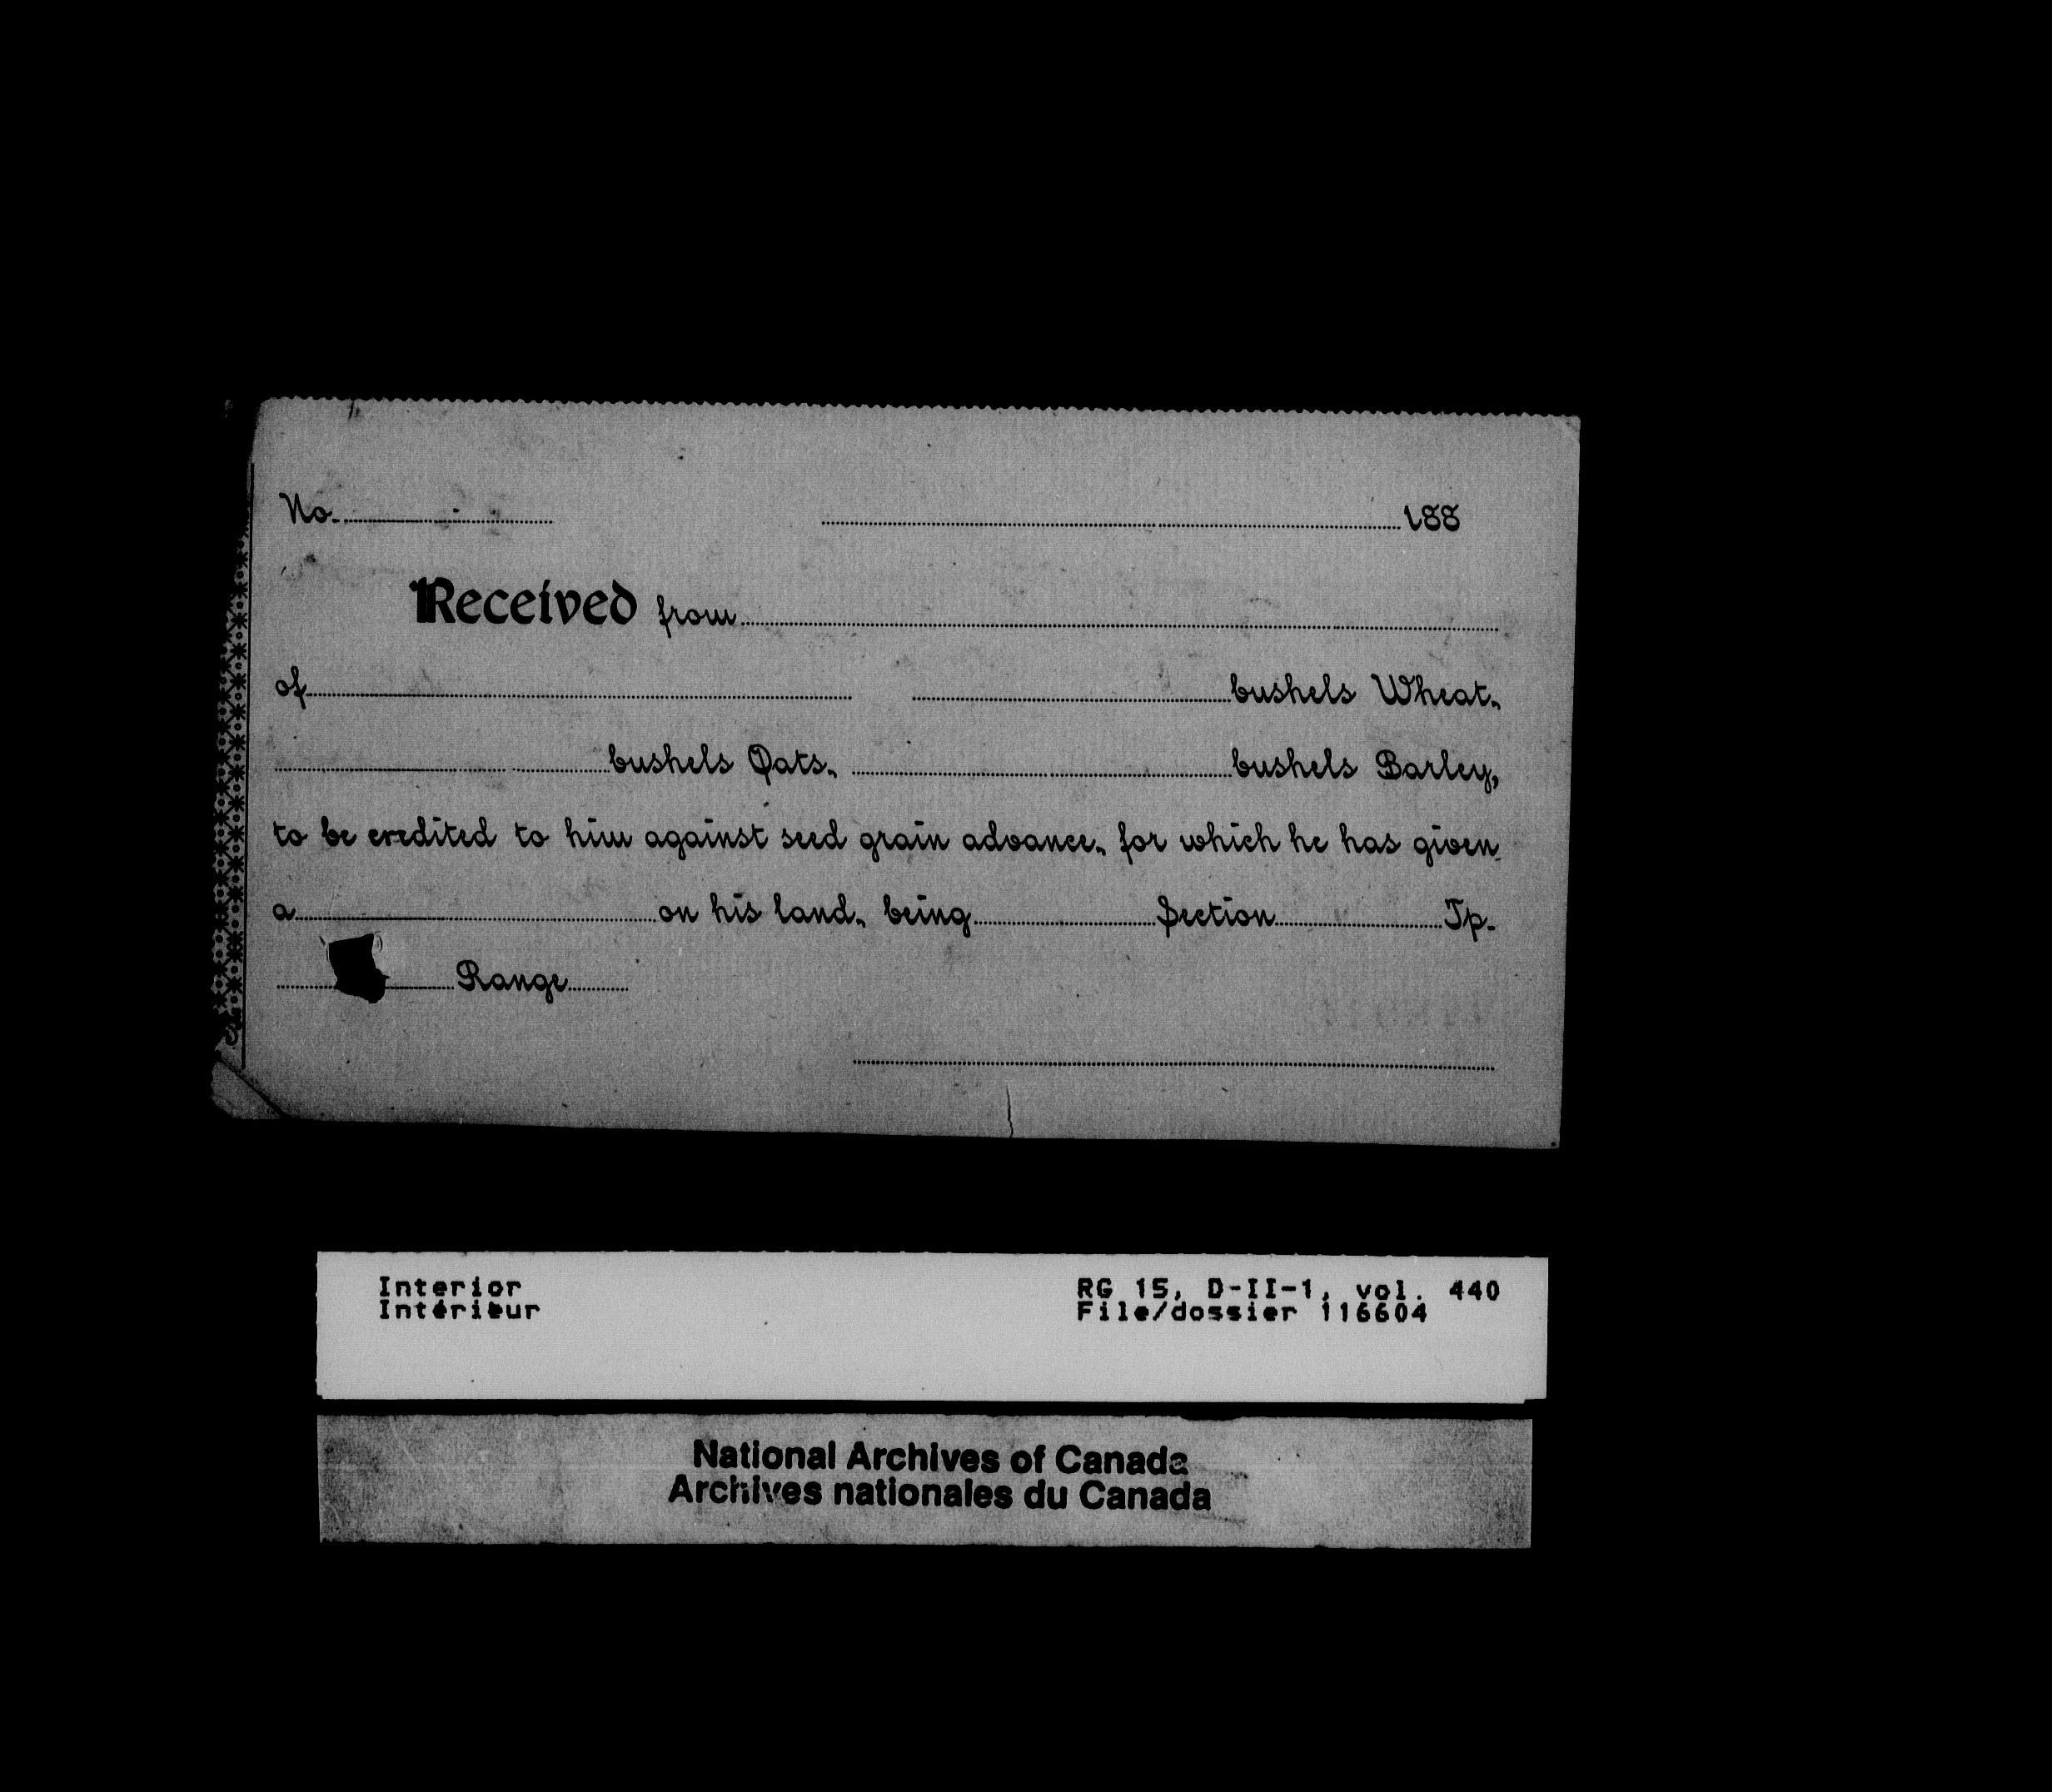 No. 188
Received from
of bushels Wheat,
bushels Oats, bushels Barley,
to be credited to him against seed grain advance, for which he has given
a on his land, being Section Tp.
Range
Interior RG 15, D-II-1, vol. 440
Intérieur File/dossier 116604
National Archives of Canada
Archives nationales du Canada